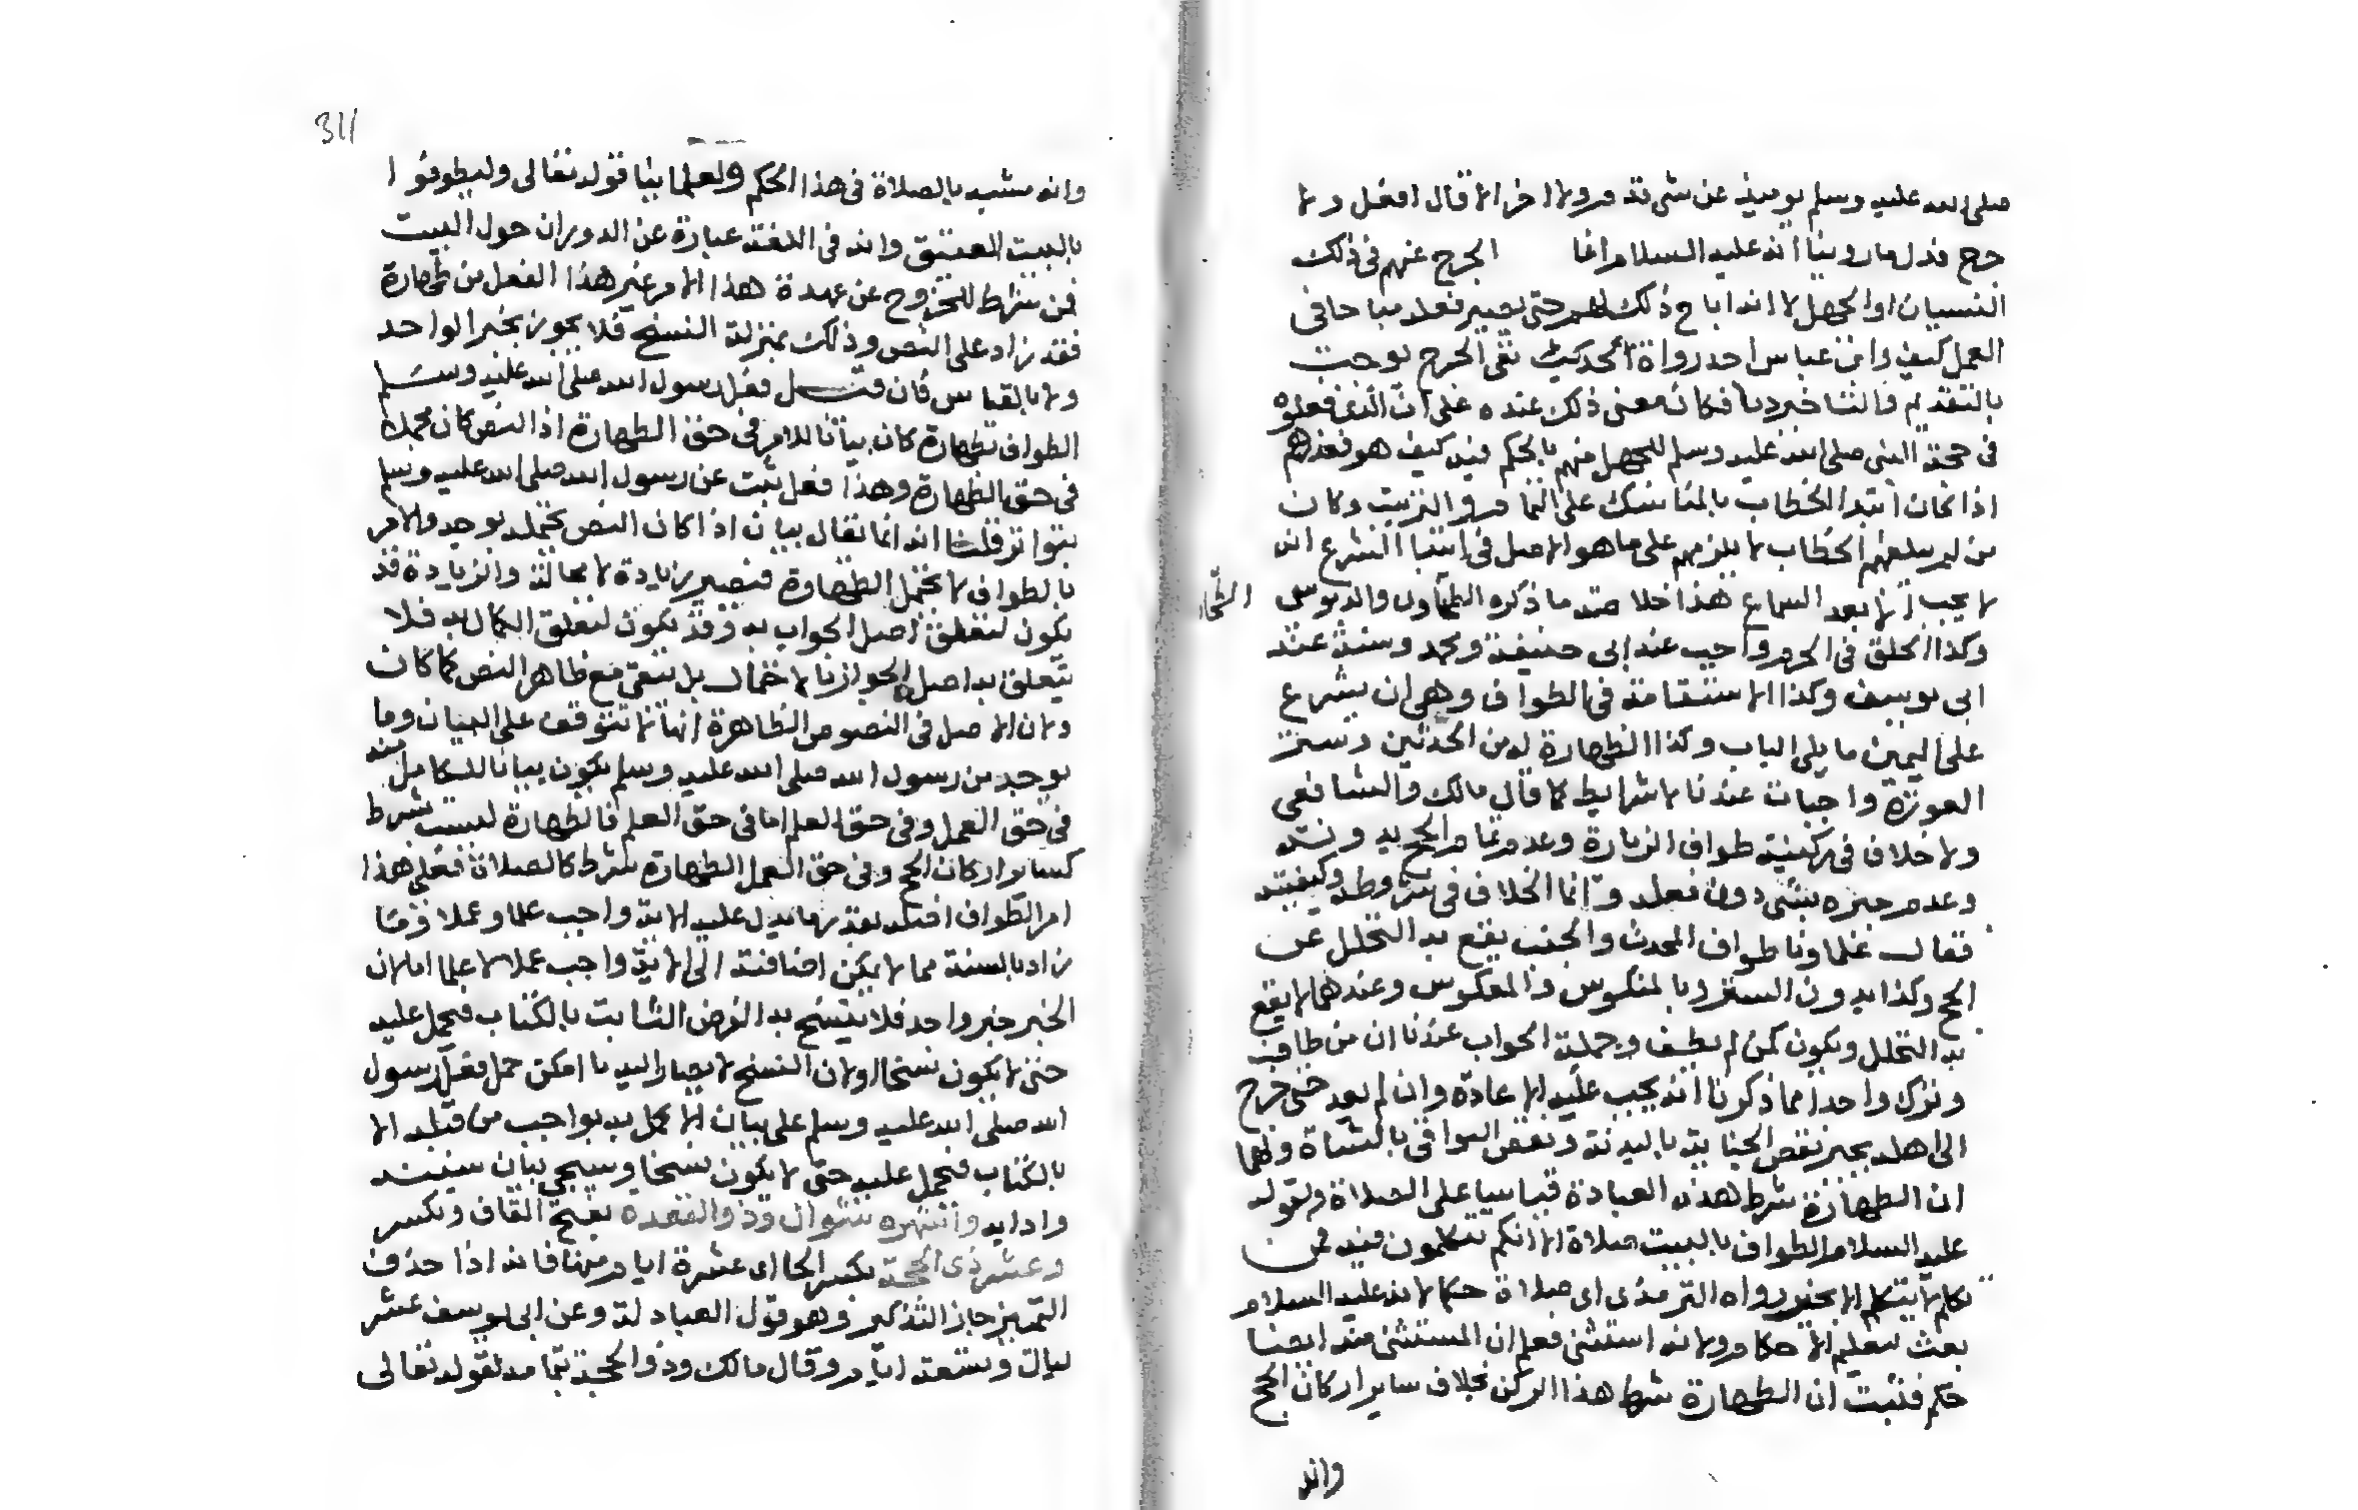 صلى الله عليه وسلم يوميذ عن شى قدم ولا اخر الا قال افعل ولا
حرج فدل ما روينا انه عليه السلام انما الحرج عنهم فى ذلك
النسيان او الجهل لا انه اباح ذلك لهم حتى يصير فعله مباحا فى
العمل كيف وابن عباس احد رواة الحديث نفى الحرج يوجب
بالتقديم والتاخير دما فكان معنى ذلك عنده على ان الذى فعلوه
فى حجة النبى صلى الله عليه وسلم للجهل منهم بالحكم فيه كيف هو فعذرهم
اذا كان ابتدا الخطاب بالمناسك على التمام والترتيب وكان
من لم يبلغهم الخطاب لا يلزمهم على ما هو الاصل فى ابتدا الشرع انه
لا يجب الا بعد السماع هذا خلاصة ما ذكره الطحاوى والدبوسى
وكذا الحلق فى الحرم واجب عند ابى حنيفة ومحمد وسنة عند
ابى يوسف وكذا الاستقامة فى الطواف وهى ان يشرع
على اليمين ما يلى الباب وكذا الطهارة له من الحدثين وستر
العورة واجبات عندنا لا شرايط كما قال مالك والشافعى
ولا خلاف فى ركنية طواف الزيارة وعدم تمام الحج بدونه
وعدم جبره بشى دون فعله وانما الخلاف فى شروطه وكيفيته
فقال علماونا طواف المحدث والجنب يقع به التحلل عن
الحج وكذا بدون الستر وبالمنكوس والمعكوس وعندهما لا يقع
به التحلل ويكون كمن لم يطف وجملة الجواب عندنا ان من طاف
وترك واحدا مما ذكرنا انه يجب عليه الاعادة وان لم يعد حتى خرج
الى اهله يجبر نقص الجنابة بالبدنة ونقص البواقى بالشاة ولهما
ان الطهارة شرط هذه العبادة قياسا على الصلاة ولقوله
عليه السلام الطواف بالبيت صلاة الا انكم تتكلمون فيه فمن
تكلم لا يتكلم الا بخير رواه الترمذى اى صلاة حكما لانه عليه السلام
بعث لتعليم الاحكام ولانه استثنى فعلم ان المستثنى منه ايضا
حكم فثبت ان الطهارة شرط هذا الركن بخلاف ساير اركان الحج
وانه
311
وانه مشبه بالصلاة فى هذا الحكم ولعلمائنا قوله تعالى وليطوفوا
بالبيت العتيق وانه فى اللغة عبارة عن الدوران حول البيت
فمن شرط للخروج عن عهدة هذا الامر غير هذا الفعل من طهارة
فقد زاد على النص وذلك بمنزلة النسخ فلا يجوز بخبر الواحد
ولا بالقياس فان قيل فعل رسول الله صلى الله عليه وسلم
الطواف بطهارة كان بيانا للامر فى حق الطهارة اذ النص كان مجملا
فى حق الطهارة وهذا فعل ثبت عن رسول الله صلى الله عليه وسلم
بتواتر قلنا انه انما يقال بيان اذا كان النص يحتمله بوجه والامر
بالطواف لا يحتمل الطهارة فتصير زيادة لا محالة والزيادة قد
يكون لتعلق اصل الجواب به وقد يكون لتعلق الكمال به فلا
يتعلق به اصل الجواز بالاحتمال بل تبقى مع ظاهر النص كما كان
ولان الاصل فى النصوص الظاهرة انها لا تتوقف على البيان وما
يوجد من رسول الله صلى الله عليه وسلم يكون بيانا للكامل منه
فى حق العمل وفى حق العلم اما فى حق العلم فالطهارة ليست شرط
كساير اركان الحج وفى حق العمل الطهارة شرط كالصلاة فعلى هذا
امر الطواف اصله بقدر ما يدل عليه الاية واجب علما وعملا وما
زاد بالسنة مما لا يمكن اضافته الى الاية واجب عملا لا علما اما لان
الخبر خبر واحد فلا ينسخ به الفرض الثابت بالكتاب فيحمل عليه
حتى لا يكون نسخا او لان النسخ لا يصار اليه ما امكن حمل فعل رسول
الله صلى الله عليه وسلم على بيان الاكمل به بواجب من قبله الا
بالكتاب فيحمل عليه حتى لا يكون نسخا وسيجى بيان سننه
وادابه واشهره شوال وذو القعدة بفتح القاف ويكسر
وعشر ذى الحجة بكسر الحا اى عشرة ايام منها فانه اذا حذف
التمييز جاز التذكير وهو قول العبادلة وعن ابى يوسف عشر
ليال وتسعة ايام وقال مالك وذو الحجة بتمامه لقوله تعالى